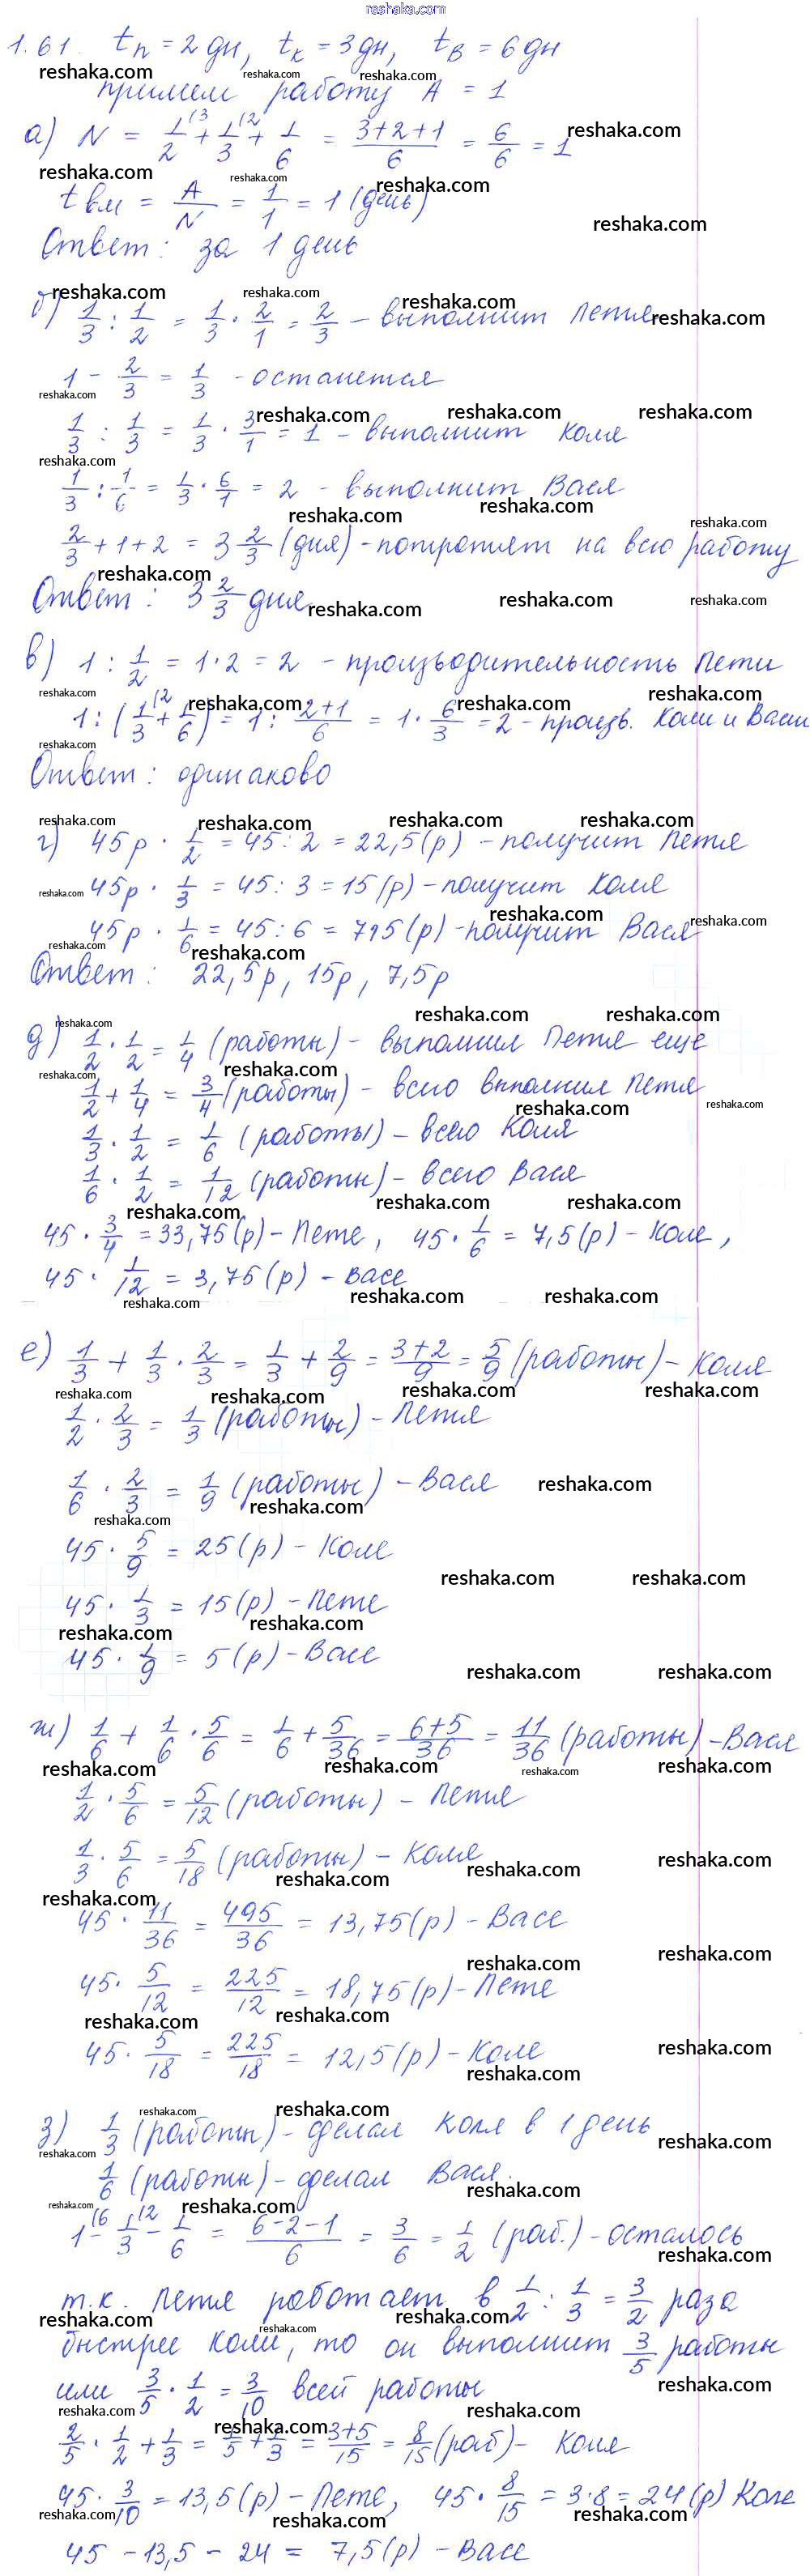 reshaka.com
1.61. tп = 2 дн, tк = 3 дн, tв = 6 дн
примем работу A = 1
а) N = 1/2 (3 + 1/3 (2 + 1/6 = (3+2+1)/6 = 6/6 = 1
tвм = A/N = 1/1 = 1 (день)
Ответ: за 1 день
б) 1/3 : 1/2 = 1/3 · 2/1 = 2/3 – выполнит Петя
1 – 2/3 = 1/3 – останется
1/3 : 1/3 = 1/3 · 3/1 = 1 – выполнит Коля
1/3 : 1/6 = 1/3 · 6/1 = 2 – выполнит Вася
2/3 + 1 + 2 = 3 2/3 (дня) – потратят на всю работу
Ответ: 3 2/3 дня
в) 1 : 1/2 = 1 · 2 = 2 – производительность Пети
1 : (1/3 (2 + 1/6) = 1 : (2+1)/6 = 1 · 6/3 = 2 – произв. Коли и Васи
Ответ: одинаково
г) 45р · 1/2 = 45 : 2 = 22,5 (р) – получит Петя
45р · 1/3 = 45 : 3 = 15 (р) – получит Коля
45р · 1/6 = 45 : 6 = 7,5 (р) – получит Вася
Ответ: 22,5р, 15р, 7,5р
д) 1/2 · 1/2 = 1/4 (работы) – выполнил Петя еще
1/2 + 1/4 = 3/4 (работы) – всего выполнил Петя
1/3 · 1/2 = 1/6 (работы) – всего Коля
1/6 · 1/2 = 1/12 (работы) – всего Вася
45 · 3/4 = 33,75 (р) – Пете, 45 · 1/6 = 7,5 (р) – Коле,
45 · 1/12 = 3,75 (р) – Васе
е) 1/3 + 1/3 · 2/3 = 1/3 + 2/9 = (3+2)/9 = 5/9 (работы) – Коля
1/2 · 2/3 = 1/3 (работы) – Петя
1/6 · 2/3 = 1/9 (работы) – Вася
45 · 5/9 = 25 (р) – Коле
45 · 1/3 = 15 (р) – Пете
45 · 1/9 = 5 (р) – Васе
ж) 1/6 + 1/6 · 5/6 = 1/6 + 5/36 = (6+5)/36 = 11/36 (работы) – Вася
1/2 · 5/6 = 5/12 (работы) – Петя
1/3 · 5/6 = 5/18 (работы) – Коля
45 · 11/36 = 495/36 = 13,75 (р) – Васе
45 · 5/12 = 225/12 = 18,75 (р) – Пете
45 · 5/18 = 225/18 = 12,5 (р) – Коле
з) 1/3 (работы) – сделал Коля в 1 день
1/6 (работы) – сделал Вася.
1 (6 – 1/3 (2 – 1/6 = (6–2–1)/6 = 3/6 = 1/2 (раб.) – осталось
т.к. Петя работает в 1/2 : 1/3 = 3/2 раза
быстрее Коли, то он выполнит 3/5 работы
или 3/5 · 1/2 = 3/10 всей работы
2/5 · 1/2 + 1/3 = 1/5 + 1/3 = (3+5)/15 = 8/15 (раб) – Коля
45 · 3/10 = 13,5 (р) – Пете, 45 · 8/15 = 3·8 = 24 (р) Коле
45 – 13,5 – 24 = 7,5 (р) – Васе